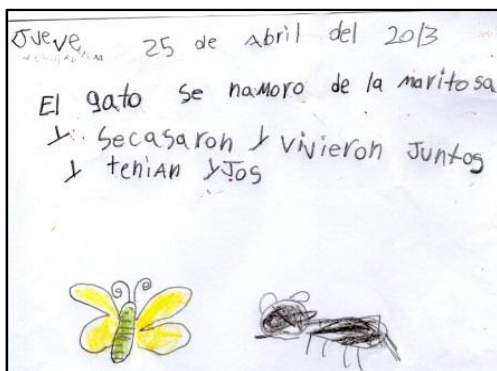 Jueve 25 de Abril del 2013
El gato se namoro de la maritosa
y secasaron y vivieron Juntos
y tenian yJos